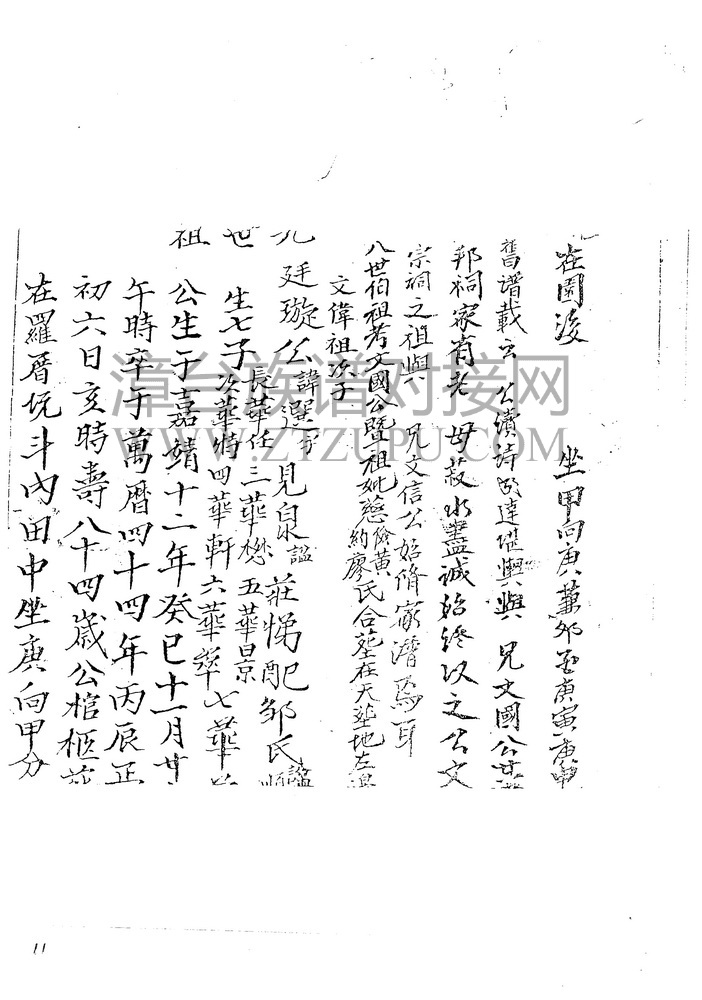 在園後 坐甲向庚兼卯 庚寅庚申
舊譜載云 公讀詩 達堪輿與 兄文國公
邦祠家有老母菽水盡誠始終以之公文
宗祠之祖與 兄文信公始脩家譜焉耳
八世伯祖考文國公暨祖妣慈儉黃約廖氏合墓在天 地左
文偉祖次子
九 廷璇公諱選字見泉謚莊悌配鄒氏謚順
長華任三華楙五華景
世 生七子
次華特四華軒六華萃七華
祖 公生于嘉靖十二年癸巳十一月廿
午時卒于萬曆四十四年丙辰正
初六日亥時壽八十四歲公棺柩
在羅厝坑斗內田中坐庚向甲分
11
漳台族谱对接网
WWW.ZTZUPU.COM